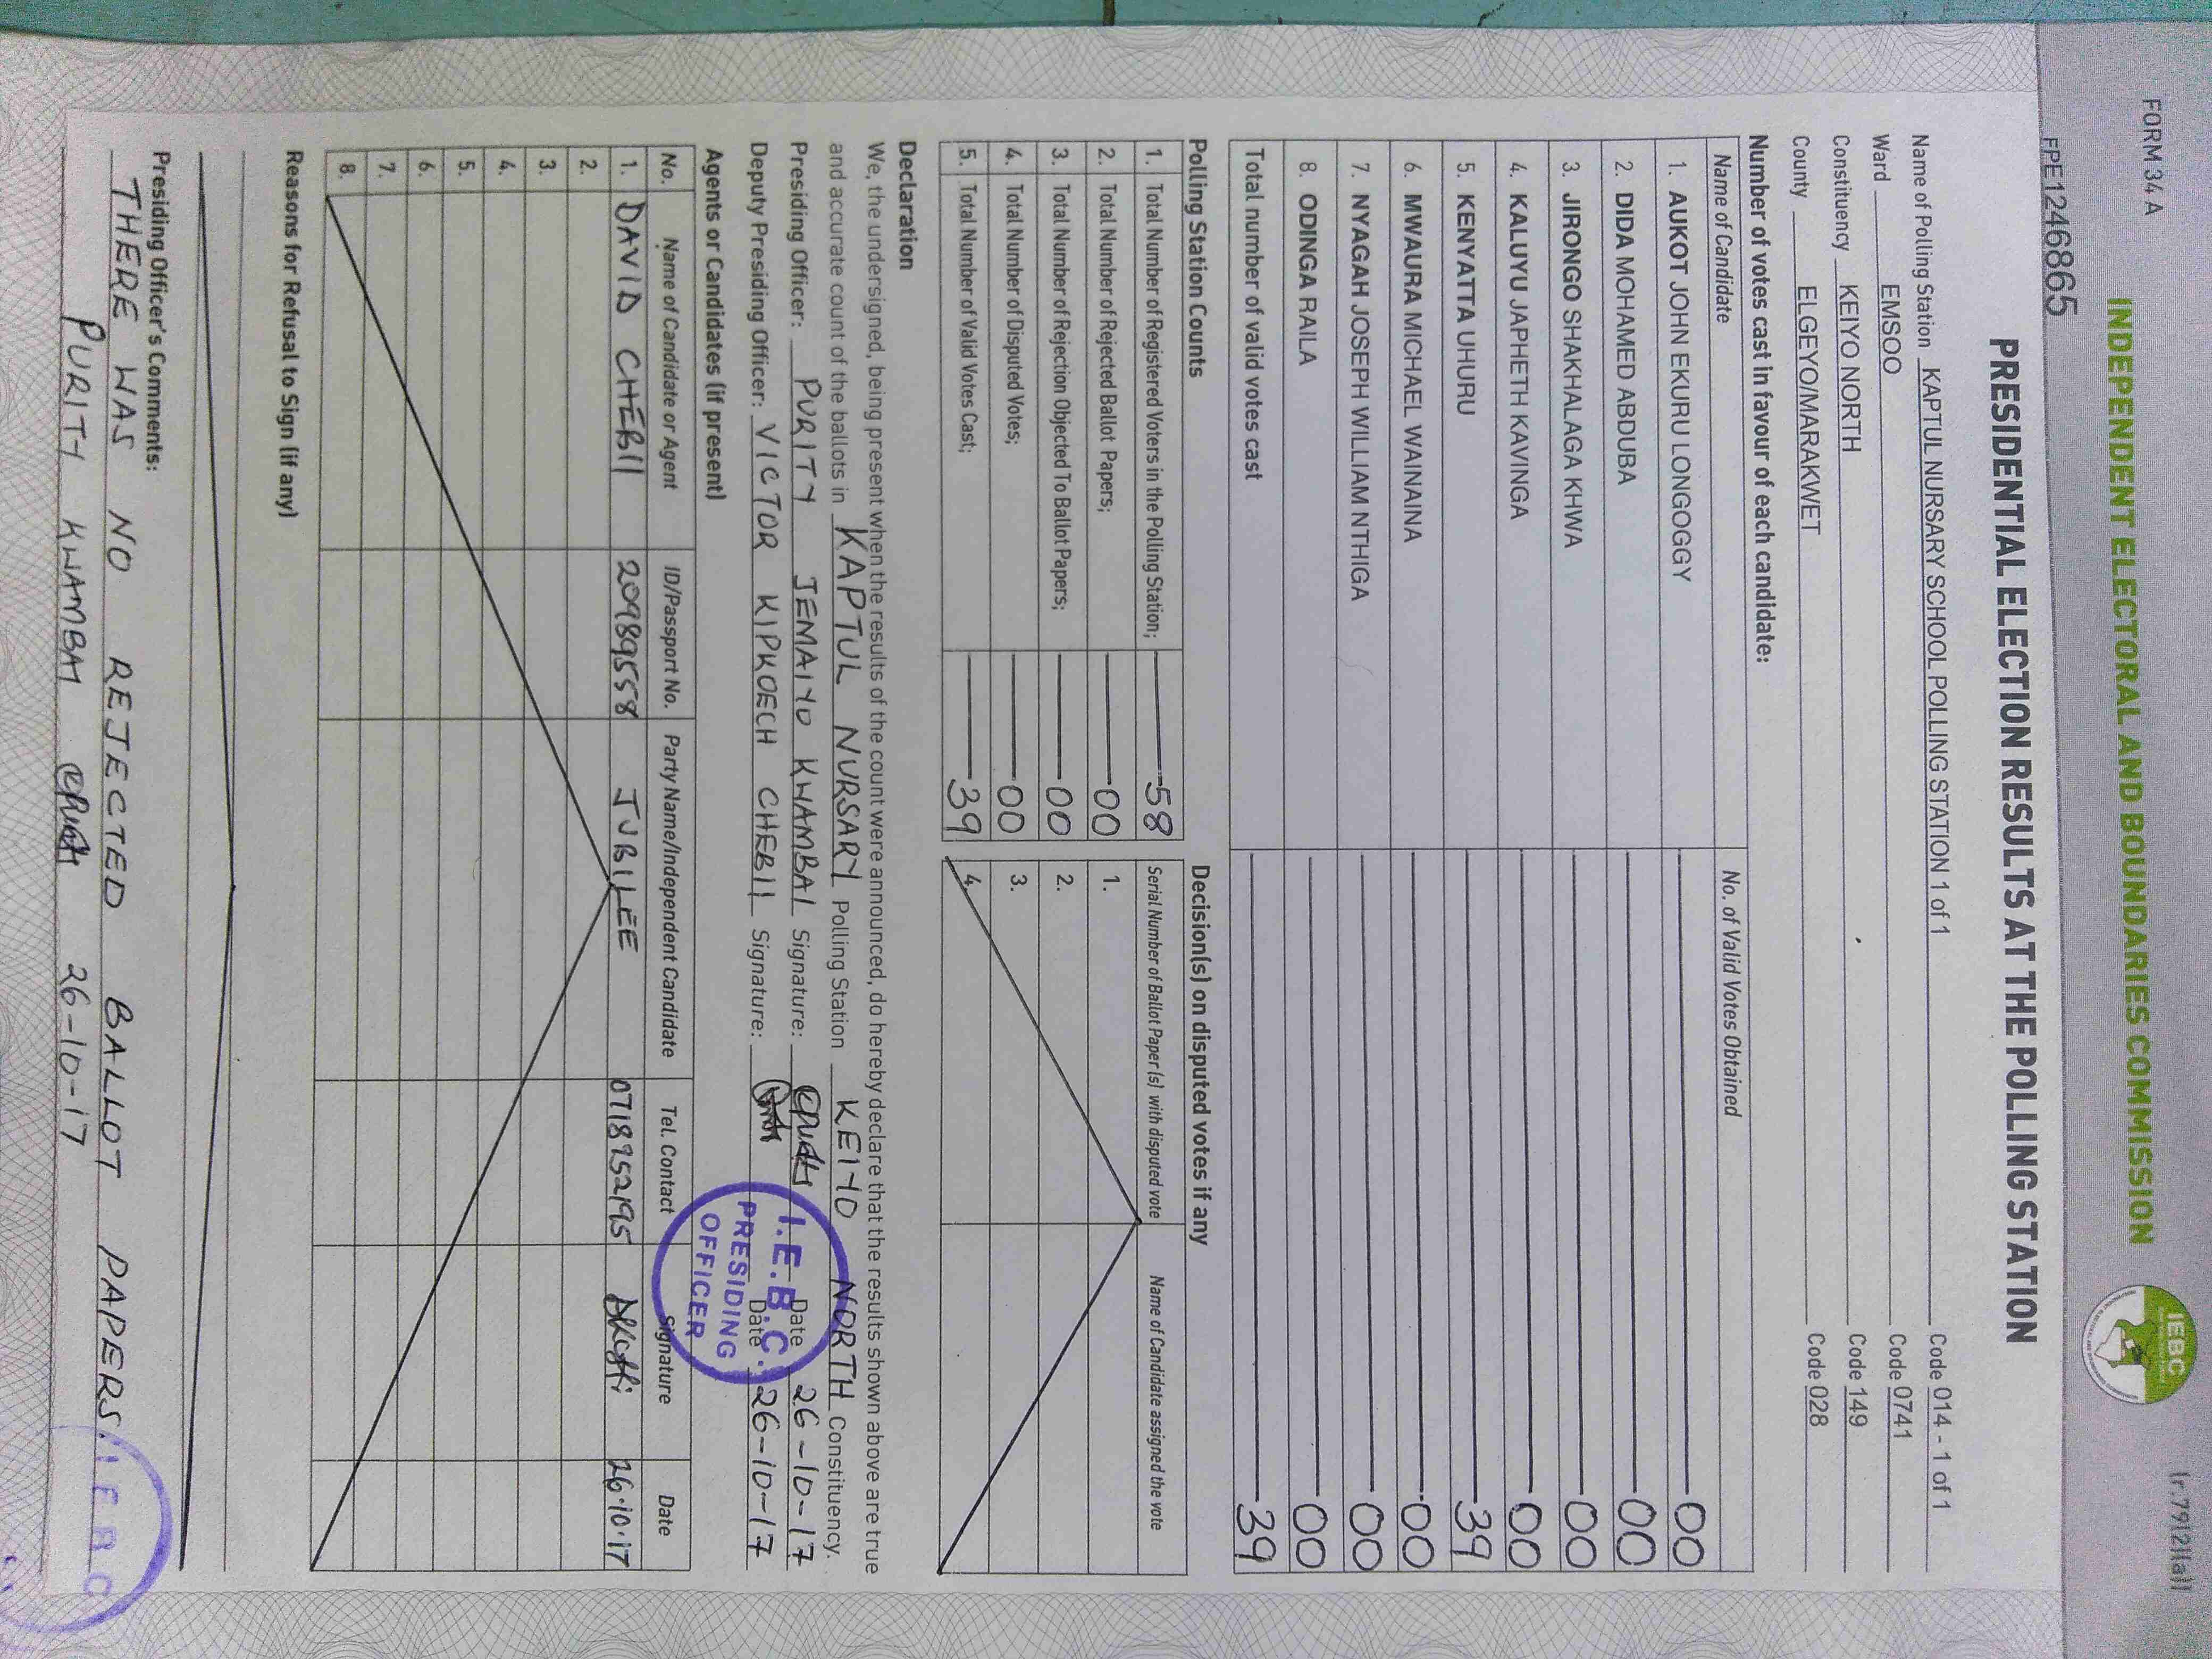 FORM 34 A
(r.79(2)(a))
INDEPENDENT ELECTORAL AND BOUNDARIES COMMISSION
IEBC
FPE1246865
PRESIDENTIAL ELECTION RESULTS AT THE POLLING STATION
Name of Polling Station KAPTUL NURSARY SCHOOL POLLING STATION 1 of 1 Code 014 - 1 of 1
Ward EMSOO Code 0741
Constituency KEIYO NORTH Code 149
County ELGEYO/MARAKWET Code 028
Number of votes cast in favour of each candidate:
Name of Candidate No. of Valid Votes Obtained
1. AUKOT JOHN EKURU LONGOGGY 00
2. DIDA MOHAMED ABDUBA 00
3. JIRONGO SHAKHALAGA KHWA 00
4. KALUYU JAPHETH KAVINGA 00
5. KENYATTA UHURU 39
6. MWAURA MICHAEL WAINAINA 00
7. NYAGAH JOSEPH WILLIAM NTHIGA 00
8. ODINGA RAILA 00
Total number of valid votes cast 39
Polling Station Counts
1. Total Number of Registered Voters in the Polling Station; 58
2. Total Number of Rejected Ballot Papers; 00
3. Total Number of Rejection Objected To Ballot Papers; 00
4. Total Number of Disputed Votes; 00
5. Total Number of Valid Votes Cast; 39
Decision(s) on disputed votes if any
Serial Number of Ballot Paper (s) with disputed vote Name of Candidate assigned the vote
1.
2.
3.
4.
Declaration
We, the undersigned, being present when the results of the count were announced, do hereby declare that the results shown above are true
and accurate count of the ballots in KAPTUL NURSARY Polling Station KEIYO NORTH Constituency.
Presiding Officer: PURITY JEMAIYO KWAMBAI Signature: Date 26-10-17
Deputy Presiding Officer: VICTOR KIPKOECH CHEBII Signature: Date 26-10-17
I.E.B.C.
PRESIDING
OFFICER
Agents or Candidates (if present)
No. Name of Candidate or Agent ID/Passport No. Party Name/Independent Candidate Tel. Contact Signature Date
1. DAVID CHEBII 20989558 JUBILEE 0718952195 26.10.17
2.
3.
4.
5.
6.
7.
8.
Reasons for Refusal to Sign (if any)
Presiding Officer's Comments:
THERE WAS NO REJECTED BALLOT PAPERS.
PURITY KWAMBAI 26-10-17
I E B C